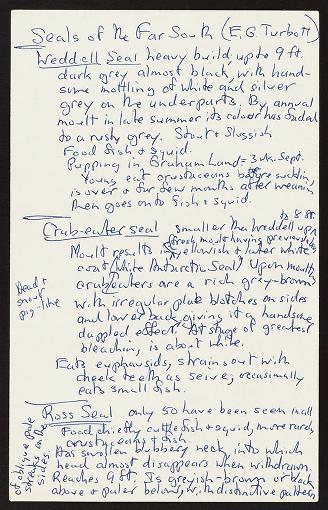 Seals of the Far South (E.G. Turbott)
Weddell Seal heavy build, up to 9 ft.
dark grey almost black, with hand-
some mottling of white and silver
grey on the underparts. By annual
moult in late summer its colour has faded
to a rusty grey. Stout & Sluggish
Food fish & squid.
Pupping in Graham Land = 3 wk. Sept.
Young eat crustaceans before suckling
is over & for few months after weaning
then goes on to fish & squid.
Crab-eater seal smaller than Weddell up to 8 ft
fresh moult having previously
Moult results in yellowish & later white
coat (White Antarctic Seal) Upon moult,
crabeaters are a rich grey-brown
with irregular pale blotches on sides
and lower back, giving it a handsome
dappled effect. At stage of greatest
bleaching, is about white.
Head &
snout
pig-like
Eats euphausids, strains out with
cheek teeth as seive; occasionally
eats small fish.
Ross Seal only 50 have been seen in all
Food chiefly cuttlefish & squid, more rarely
crustaceans & fish.
Has swollen blubbery neck into which
head almost disappears when withdrawn.
Reaches 9 ft. Is greyish-brown or black
above & paler below, with distinctive pattern
of oblique pale
streaks on the
sides.